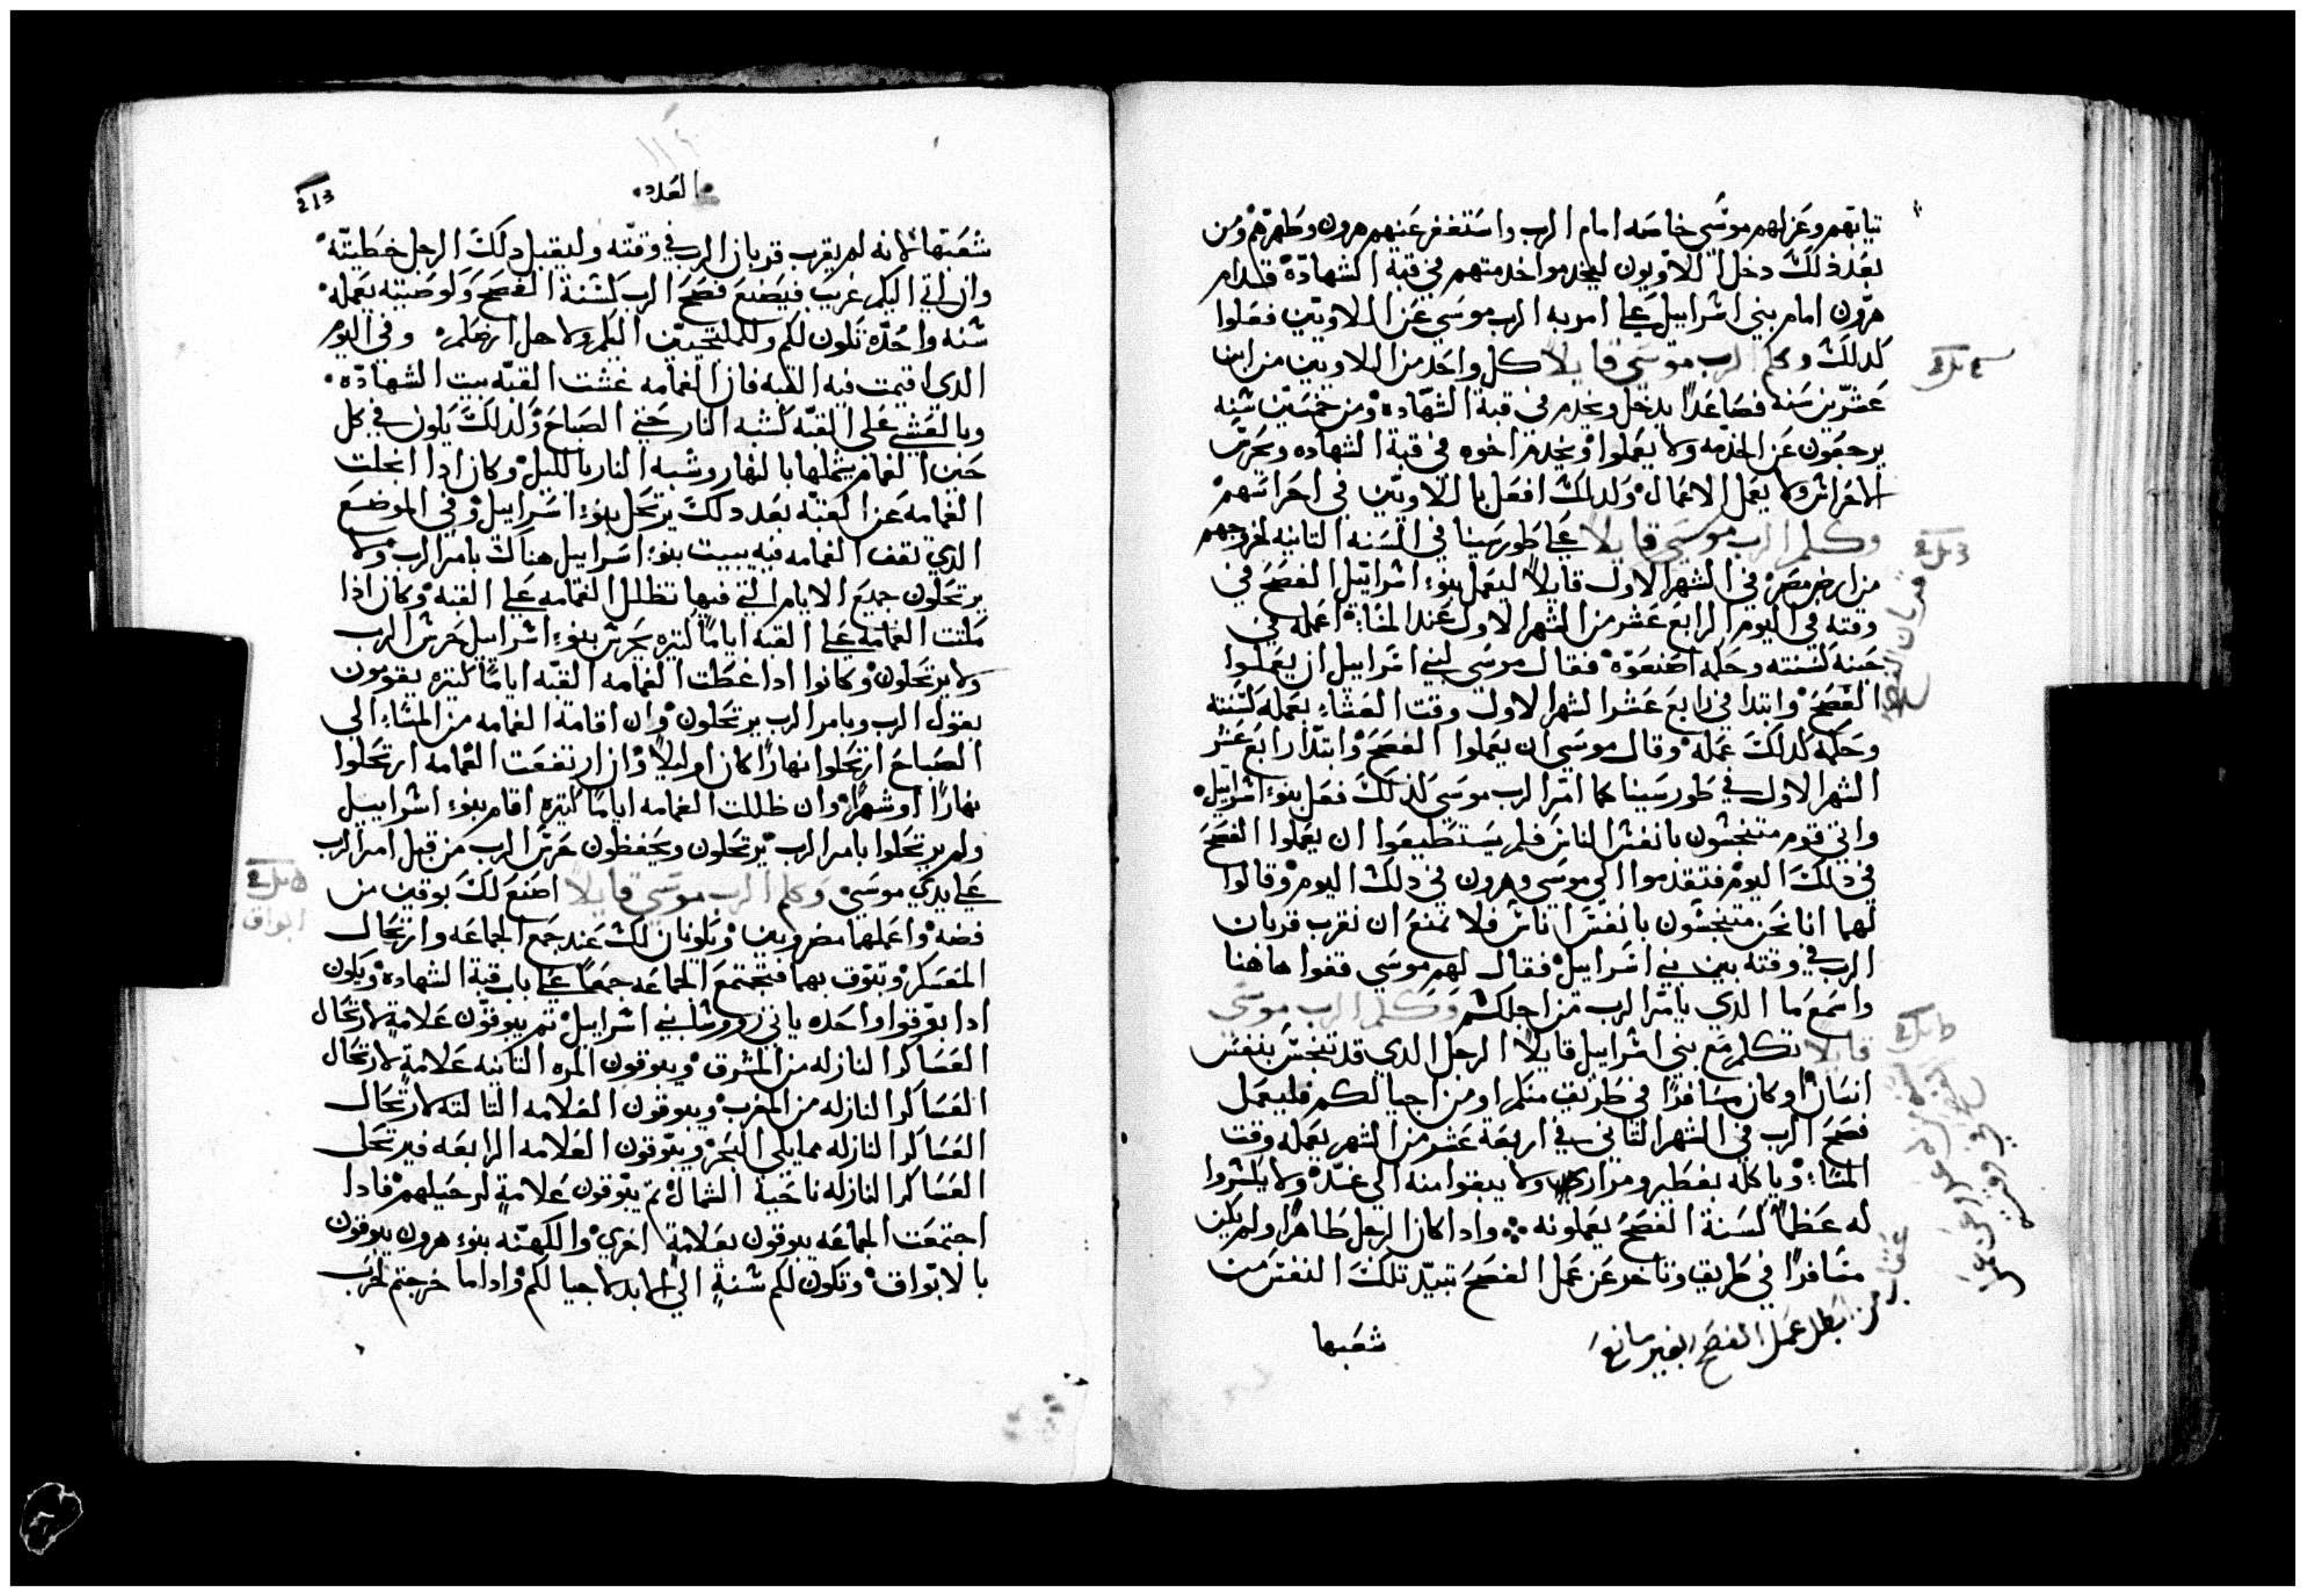 تيابهم وعزلهم موسى خاصه امام الرب واستغفر عنهم هرون وطهرهم ومن
بعد ذلك دخل اللاويون ليخدموا خدمتهم في قبة الشهادة قدام
هرون امام بني اسراييل على امر به الرب موسى عن اللاويين فعلوا
كدلك وكلم الرب موسى قايلا كل واحد من اللاويين من ابن
عشرين سنه فصاعدا يدخل ويخدم في قبة الشهاده ومن خمسين سنه
يرجعون عن الخدمه ولا يعملوا ويخدم اخوه في قبة الشهاده ويحرس
الاحراس ولا يعمل الاعمال وكدلك افعل باللاويين في احراسهم
وكلم الرب موسى قايلا على طور سينا في السنه التانيه لخروجهم
من ارض مصر في الشهر الاول قايلا ليعمل بنوء اسراييل الفصح في
وقته في اليوم الرابع عشر من الشهر الاول عند المساء اعمله في
حينه كسنته وحله اصنعوه فقال موسى لبني اسراييل ان يعملوا
الفصح وابتدا في رابع عشر الشهر الاول وقت العشاء يعمله كسنته
وحكمه كدلك عمله وقال موسى ان يعملوا الفصح وابتدا رابع عشر
الشهر الاول في طور سينا كما امر الرب موسى كذلك فعل بنوء اسراييل
واتى قوم متنجسون بانفس الناس فلم يستطيعوا ان يعملوا الفصح
في ذلك اليوم فتقدموا الى موسى وهرون في ذلك اليوم وقالوا
لهما انا نحن متنجسون بانفس اناس فلا تمنع ان نقرب قربان
الرب في وقته بين بني اسراييل فقال لهم موسى قفوا هاهنا
واسمع ما الدي يامر الرب من اجلكم وكلم الرب موسى
قايلا تكلم مع بني اسراييل قايلا الرجل الدي قد تنجس بنفس
انسان او كان مسافرا في طريق منكم او من اجيالكم فليعمل
فصح الرب في الشهر التاني في اربعة عشر من الشهر يعمله وقت
المساء وياكله بفطير ومرارى ولا يبقوا منه الى غد ولا يكسروا
له عظما كسنة الفصح يعملونه واداكان الرجل طاهرا ولم يكن
مسافرا في طريق وتاخر عن عمل الفصح تبيد تلك النفس من
شعبها
قربان الفصح
من ابطل عمل الفصح بغير مانع
العدد
213
شعبها لانه لم يقرب قربان الرب في وقته وليقبل دلك الرجل خطيته
وان اتى اليكم غريب فيصنع فصح الرب كسنة الفصح وكوصيته يعمله
سنه واحده تكون لكم وللملتجيين اليكم ولاهل ارضكم وفي اليوم
الدي اقيمت فيه القبه فان الغمامه غشت القبه بيت الشهاده
وبالعشي على القبه كشبه النار حتى الصباح وكدلك يكون في كل
حين الغمام يظلها بالنهار وشبه النار بالليل وكان ادا انجلت
الغمامه عن القبه بعد دلك يرتحل بنوء اسراييل وفي الموضع
الدي تقف الغمامه فيه يبيت بنوء اسراييل هناك بامر الرب ولا
يرتحلون جميع الايام التي فيها تظلل الغمامه على القبه وكان اذا
مكتت الغمامه على القبه اياما كتيره يحرس بنوء اسراييل حرس الرب
ولا يرتحلون وكانوا ادا غطت الغمامه القبه اياما كتيره يقومون
بقول الرب وبامر الرب يرتحلون وان اقامة الغمامه من المساء الى
الصباح ارتحلوا نهارا كان او ليلا وان ارتفعت الغمامه ارتحلوا
نهارا او شهرا وان ظللت الغمامه اياما كتيره اقام بنوء اسراييل
ولم يرتحلوا بامر الرب يرتحلون ويحفظون حرس الرب من قبل امر الرب
على يدي موسى وكلم الرب موسى قايلا اصنع لك بوقين من
فضه واعملهما مضروبين ويكونان لك عند جمع الجماعه وارتحال
المعسكر وتبوق بهما فتجتمع الجماعه جمعا على باب قبة الشهاده ويكون
ادا بوقوا واحده ياتي روسا بني اسراييل تم يبوقون علامة لارتحال
العساكر النازله من المشرق ويبوقون المره التانيه علامة لارتحال
العساكر النازله من المغرب ويبوقون العلامه التالته لارتحال
العساكر النازله مما يلي البحر ويبوقون العلامه الرابعه فيرتحل
العساكر النازله ناحية الشمال تم يبوقون علامة لرحيلهم فادا
اجتمعت الجماعه يبوقون بعلامة اخرى والكهنه بنوء هرون يبوقون
بالابواق وتكون لكم سنة الى الابد لاجيالكم واداما خرجتم لحرب
ابواق